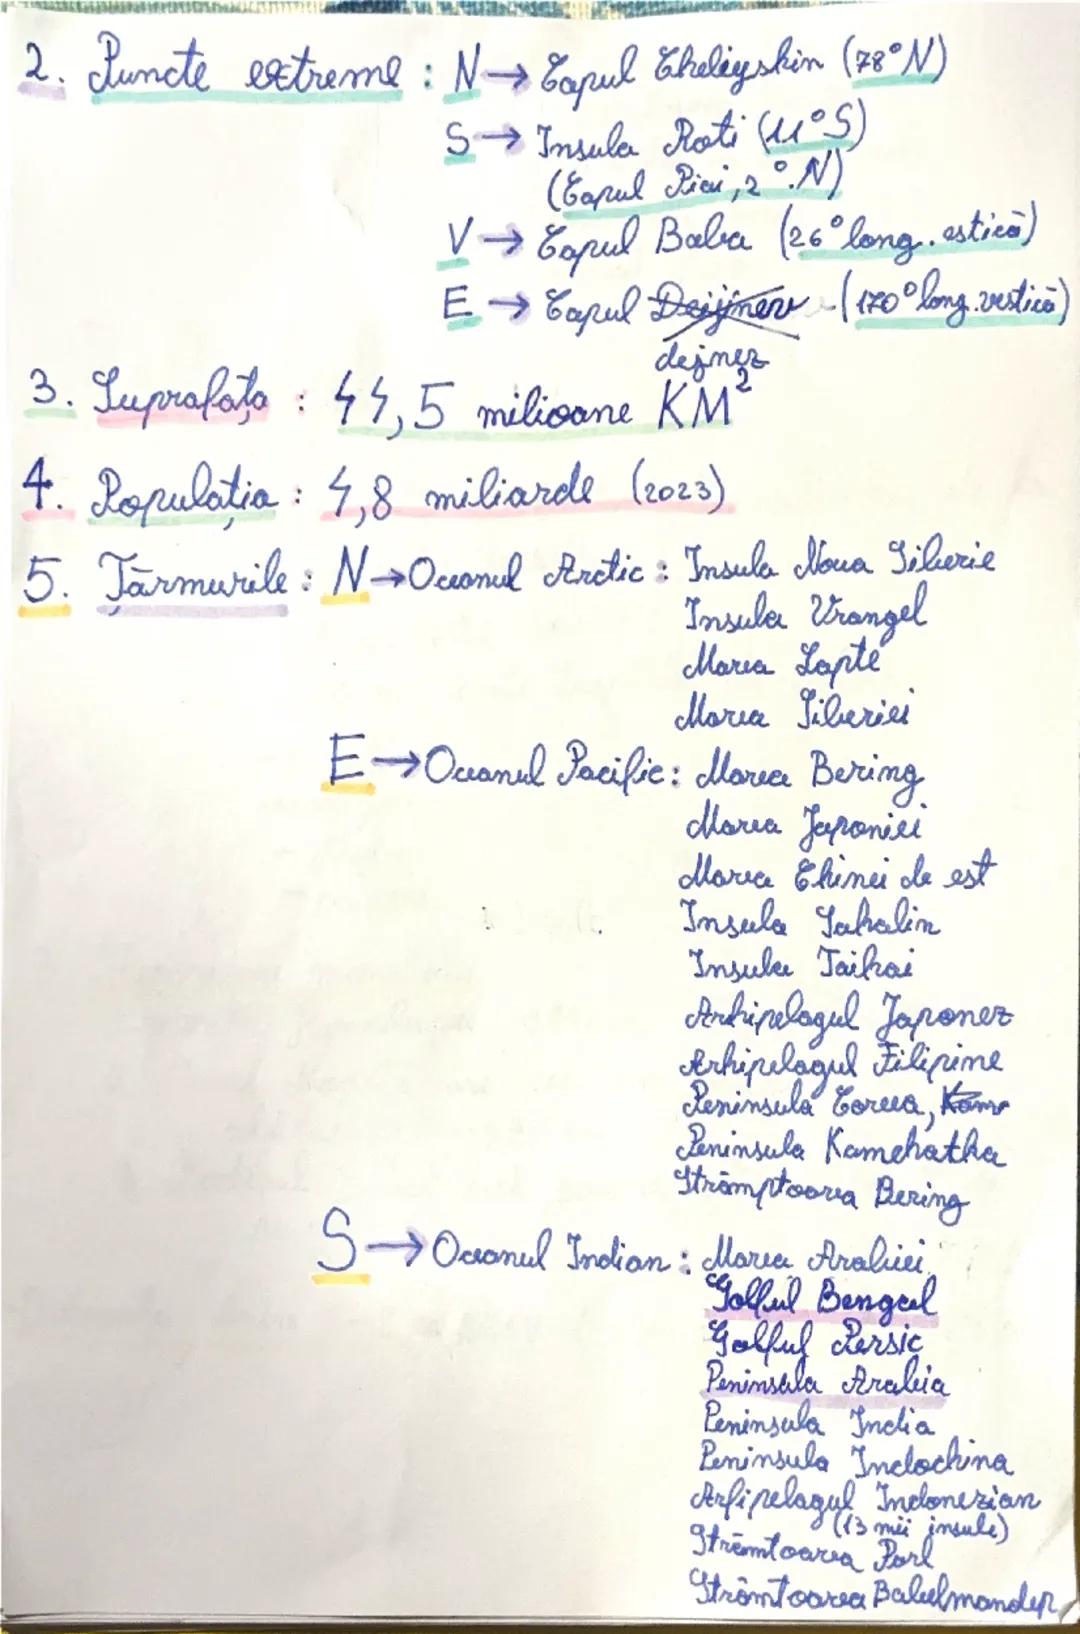 2. Puncte extreme : N → Capul Cheliyshin (78°N)
S → Insula Roti (11°S)
(Capul Piai, 2°.N)
V → Capul Baba (26° long. estică)
E → Capul Deijinev (170° long. vestică)
dejnez
3. Suprafața : 44,5 milioane KM²
4. Populația : 4,8 miliarde (2023)
5. Țărmurile : N → Oceanul Arctic : Insula Noua Siberie
Insula Vrangel
Marea Lapte
Marea Siberiei
E → Oceanul Pacific : Marea Bering
Marea Japoniei
Marea Chinei de est
Insula Sahalin
Insula Taihai
Arhipelagul Japonez
Arhipelagul Filipine
Peninsula Coreea, Kam
Peninsula Kamchatka
Strâmptoarea Bering
S → Oceanul Indian : Marea Arabiei
Golful Bengal
Golful Persic
Peninsula Arabia
Peninsula India
Peninsula Indochina
Arhipelagul Indonezian
(13 mii insule)
Strâmtoarea Parl
Strâmtoarea Babelmandep